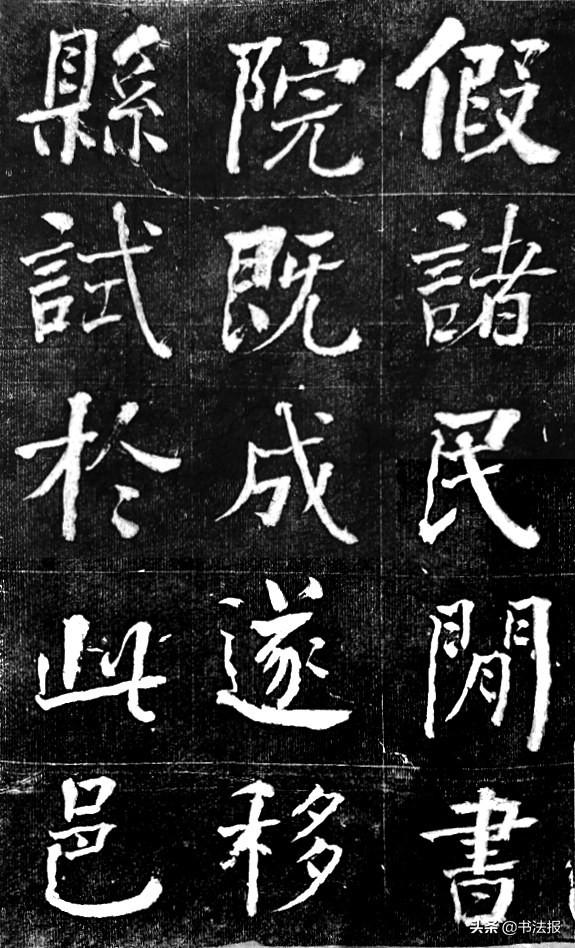 假諸民閒書
院既成遂移
縣試於此邑
头条 @书法报